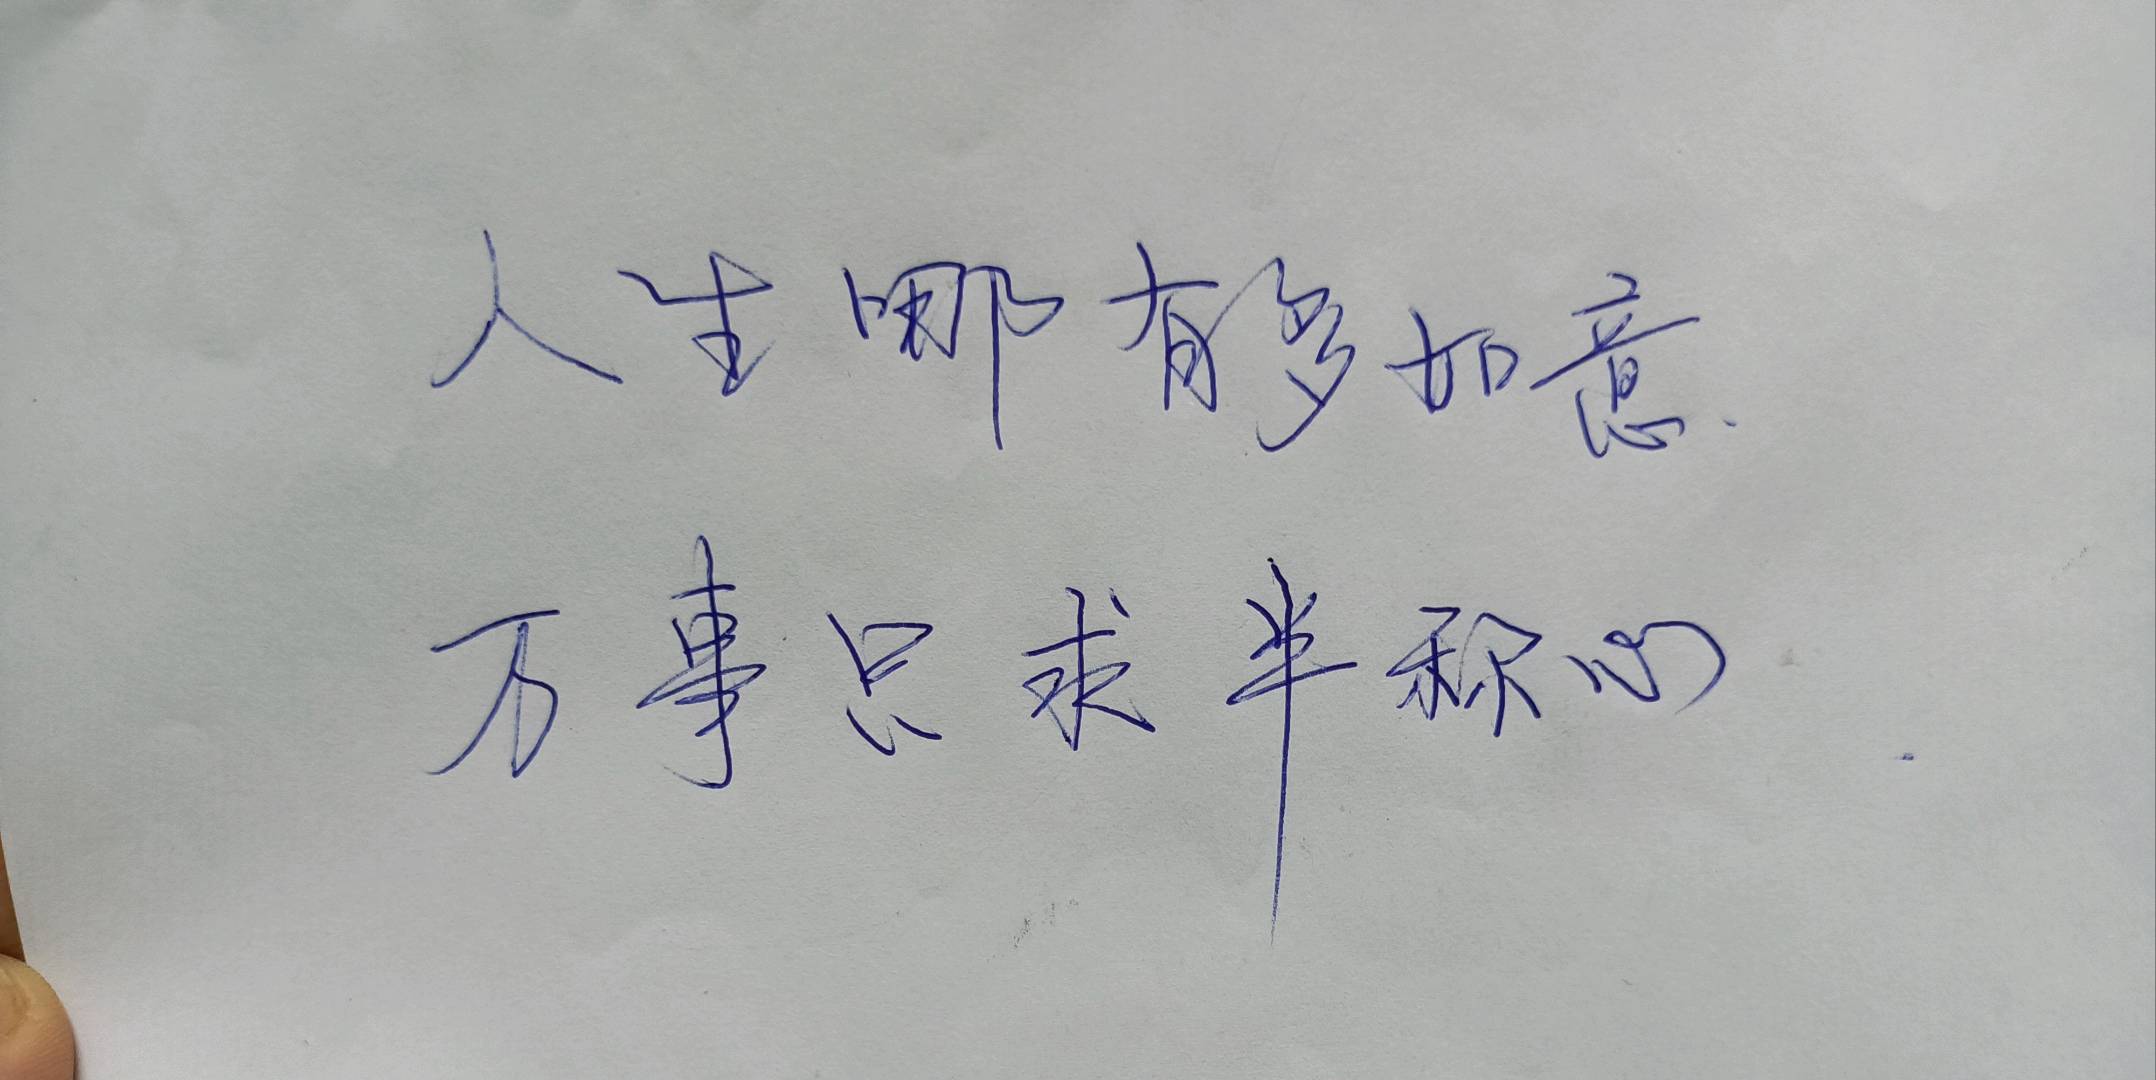 人生哪有多如意
万事只求半称心